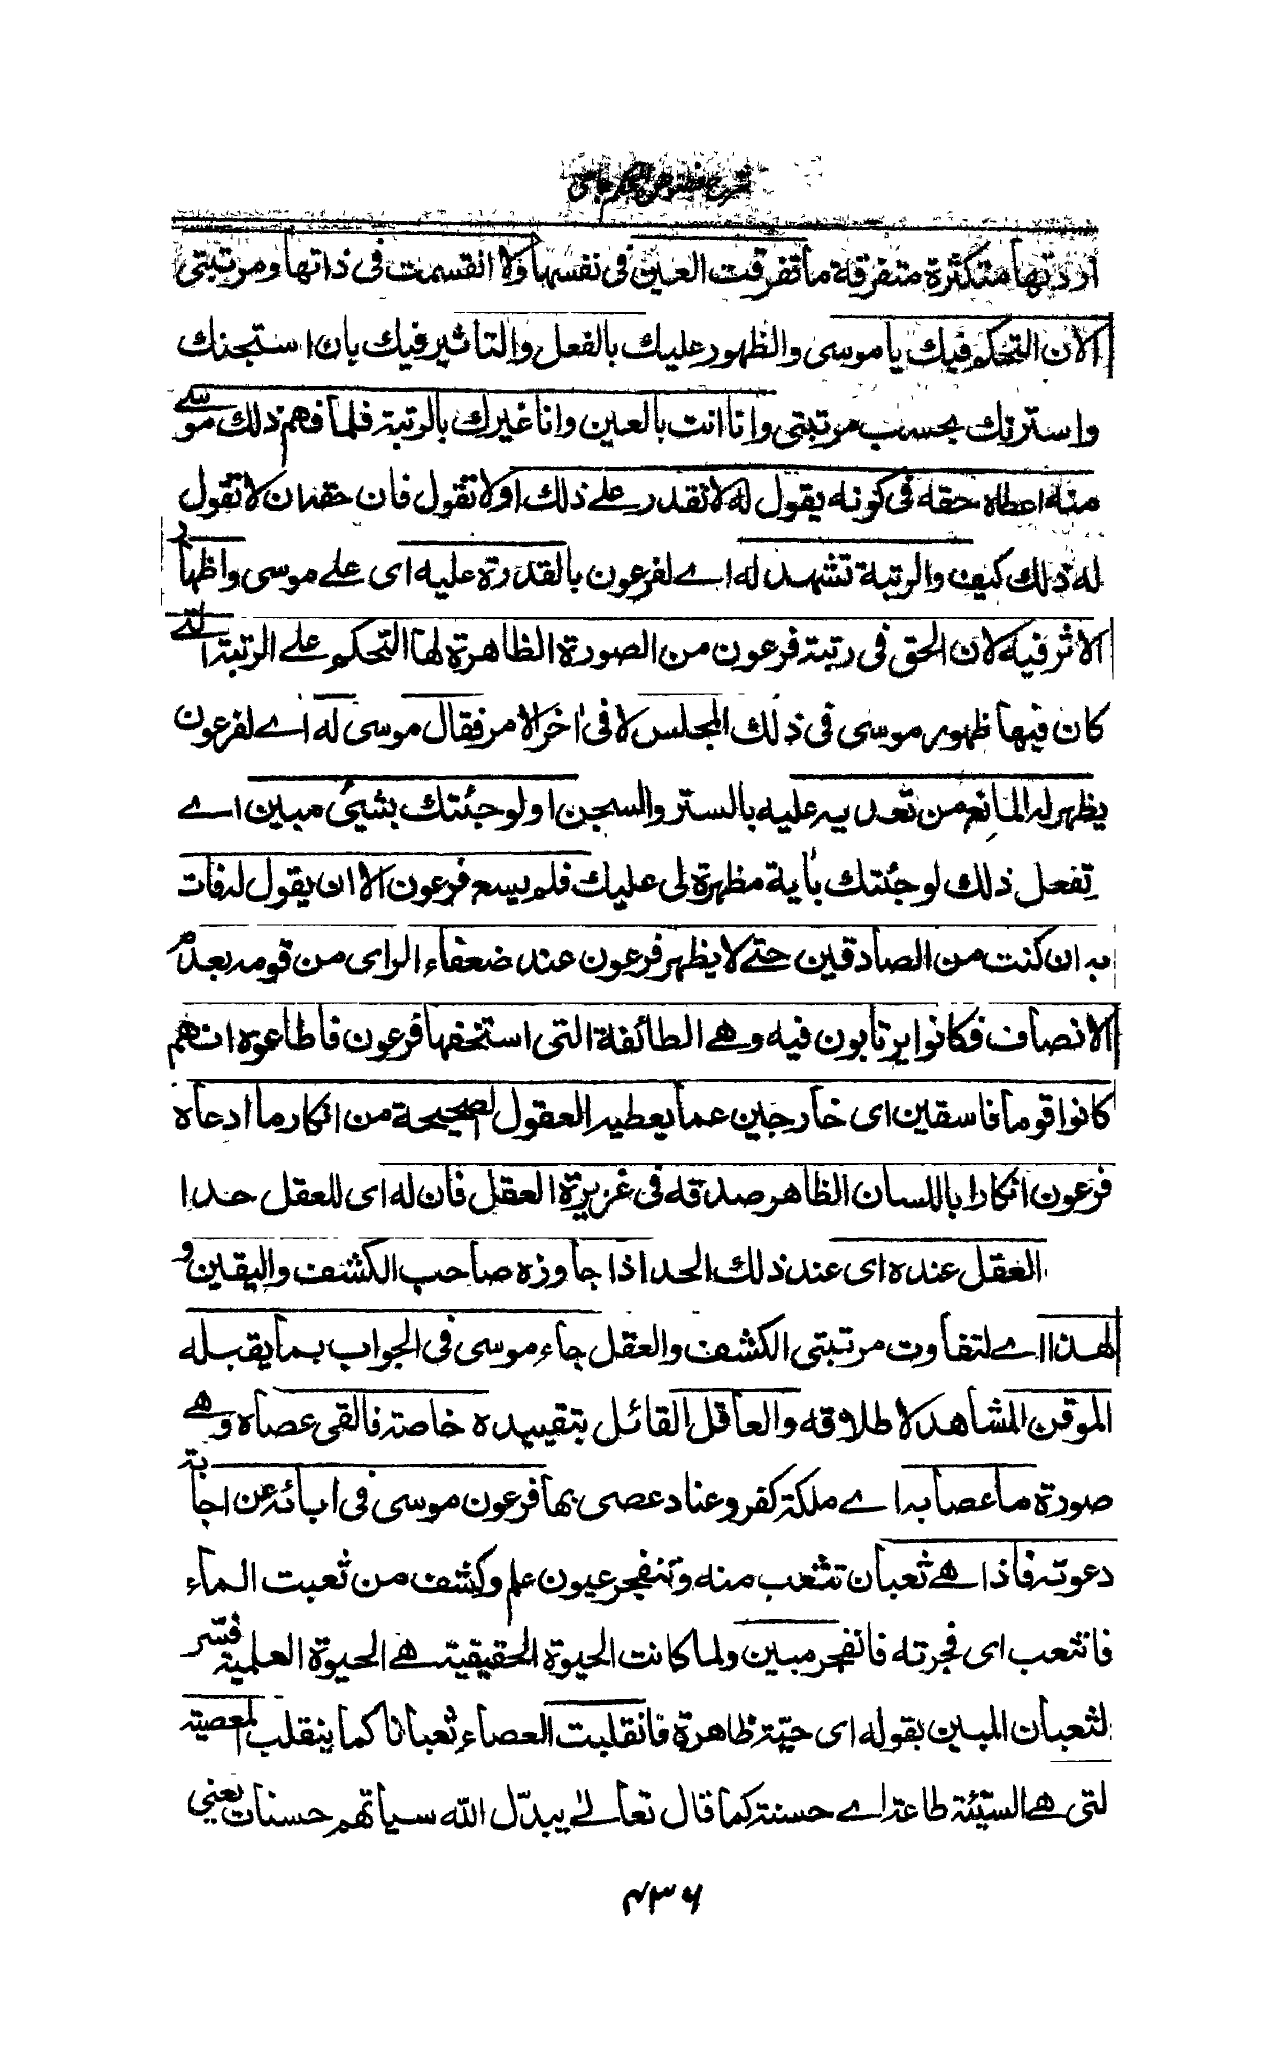 شرح فصوص الحكم جامی
اوردتها متكثرة متفرقة ما تفرقت العين فى نفسها ولا انقسمت فى ذاتها ومرتبتى
الان التحكم فيك يا موسى والظهور عليك بالفعل والتاثير فيك بان استجنك
واسترتك بحسب مرتبتى وانا انت بالعين وانا غيرك بالرتبة فلما فهم ذلك موسے
منه اعطاه حقه فى كونه يقول له لا تقدر علے ذلك اولا تقول فان حقه ان لا تقول
له ذلك كيف والرتبة تشهد له اے لفرعون بالقدرة عليه اى علے موسى واظهار
الاثر فيه لان الحق فى رتبة فرعون من الصورة الظاهرة لها التحكم علے الرتبة التے
كان فيها ظهور موسى فى ذلك المجلس لا فى اخر الامر فقال موسى له اے لفرعون
يظهر له المانع من تعديه عليه بالستر والسجن اولو جئتك بشيئ مبين اے
تفعل ذلك لو جئتك باية مظهرة لى عليك فلم يسع فرعون الا ان يقول له فات
به ان كنت من الصادقين حتے لا يظهر فرعون عند ضعفاء الراى من قومه بعدم
الانصاف فكانوا يرتابون فيه وهے الطائفة التى استخفها فرعون فاطاعوه انهم
كانوا قوما فاسقين اى خارجين عما يعطيه العقول الصحيحة من انكار ما ادعاه
فرعون انكارا باللسان الظاهر صدقه فى غريزة العقل فان له اى للعقل حدا
العقل عنده اى عند ذلك الحد اذا جاوزه صاحب الكشف واليقين و
لهذا اے لتفاوت مرتبتى الكشف والعقل جاء موسى فى الجواب بما يقبله
الموقن المشاهد لاطلاقه والعاقل القائل بتقييده خاصة فالقى عصاه وهے
صورة ما عصا به اے ملكة كفر وعناد عصى بها فرعون موسى فى ابائه عن اجابة
دعوته فاذا هے ثعبان تثعب منه وتنفجر عيون علم وكشف من ثعبت الماء
فانثعب اى فجرته فانفجر مبين ولما كانت الحيوة الحقيقية هے الحيوة العلمية فسّر
لثعبان المبين بقوله اى حيّة ظاهرة فانقلبت العصاء ثعبانا كما ينقلب لمعصية
لتى هے السيّئة طاعة اے حسنة كما قال تعالے يبدّل الله سياتهم حسنات يعنى
۴۳۶